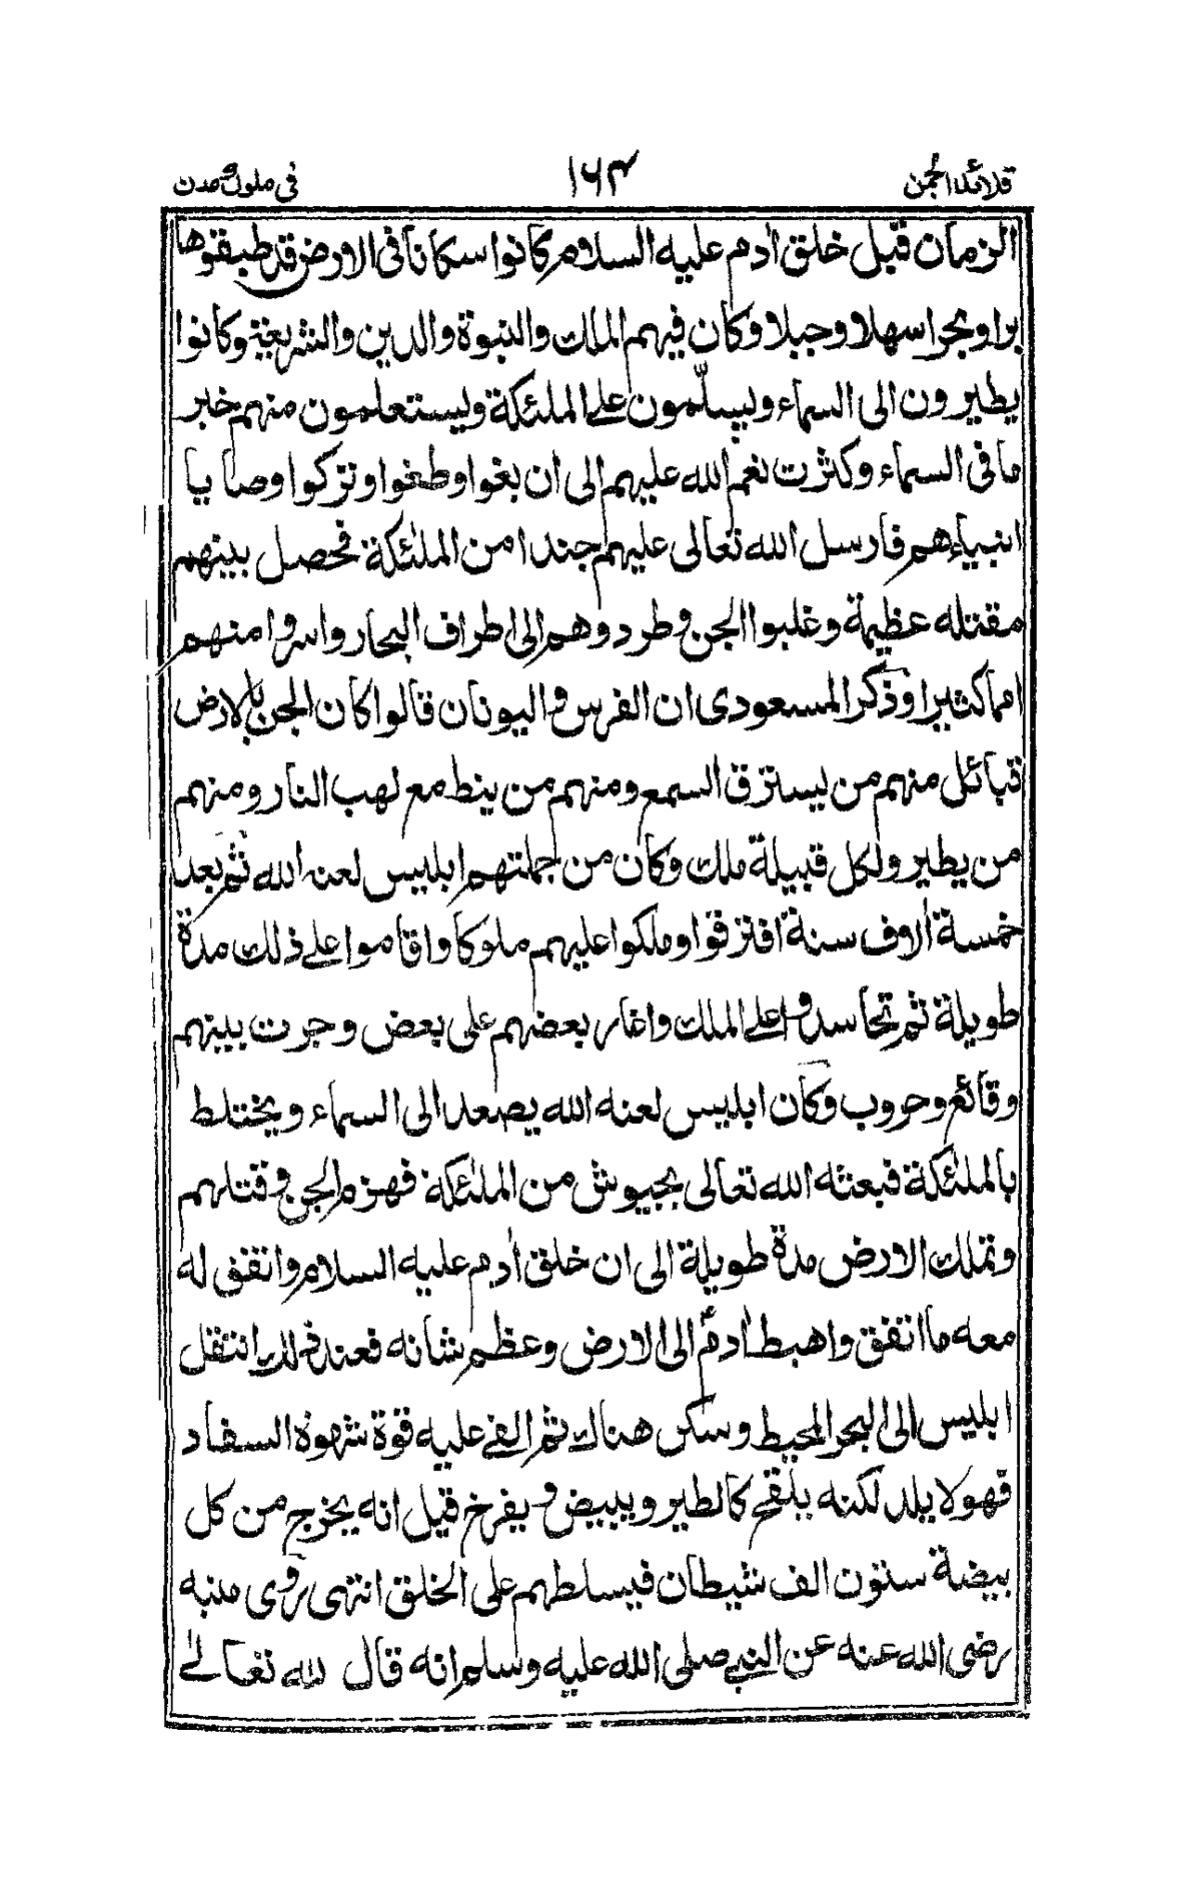 قلائد الجمن
١٦٣
فی ملوك مدن
الزمان قبل خلق اٰدم عليه السلام كانوا سكانا فی الارض قد طبقوها
برا وبحرا سهلا وجبلا وكان فيهم الملك والنبوة والدين والشريعة وكانوا
يطيرون الى السماء ويسلّمون على الملئكة ويستعلمون منهم خبر
ما فی السماء وكثرت نعم الله عليهم الى ان بغوا وطغوا وتركوا وصايا
انبياءهم فارسل الله تعالى عليهم جندا من الملٰئكة فحصل بينهم
مقتله عظيمة وغلبوا الجن وطردوهم الى اطراف البحار واسروا منهم
امما كثيرا وذكر المسعودی ان الفرس واليونان قالوا كان الجن بالارض
قبائل منهم من يسترق السمع ومنهم من ينط مع لهب النار ومنهم
من يطير ولكل قبيلة ملك وكان من جملتهم ابليس لعنه الله ثم بعد
خمسة اٰلاوف سنة افترقوا وملكوا عليهم ملوكا واقاموا على ذلك مدة
طويلة ثم تحاسدوا على الملك واغار بعضهم على بعض وجرت بينهم
وقائع وحروب وكان ابليس لعنه الله يصعد الى السماء ويختلط
بالملٰئكة فبعثه الله تعالى بجيوش من الملٰئكة فهزم الجن وقتلهم
وتملك الارض مدة طويلة الى ان خلق اٰدم عليه السلام واتفق له
معه ما اتفق واهبط اٰدمؑ الى الارض وعظم شانه فعند ذلك انتقل
ابليس الى البحر المحيط وسكن هناك ثم القی عليه قوة شهوة السفاد
فهو لا يلد لكنه يلقح كالطير ويبيض ويفرخ قيل انه يخرج من كل
بيضة ستون الف شيطان فيسلطهم على الخلق انتهى روی منبه
رضی الله عنه عن النبی صلى الله عليه وسلم انه قال لله تعالى